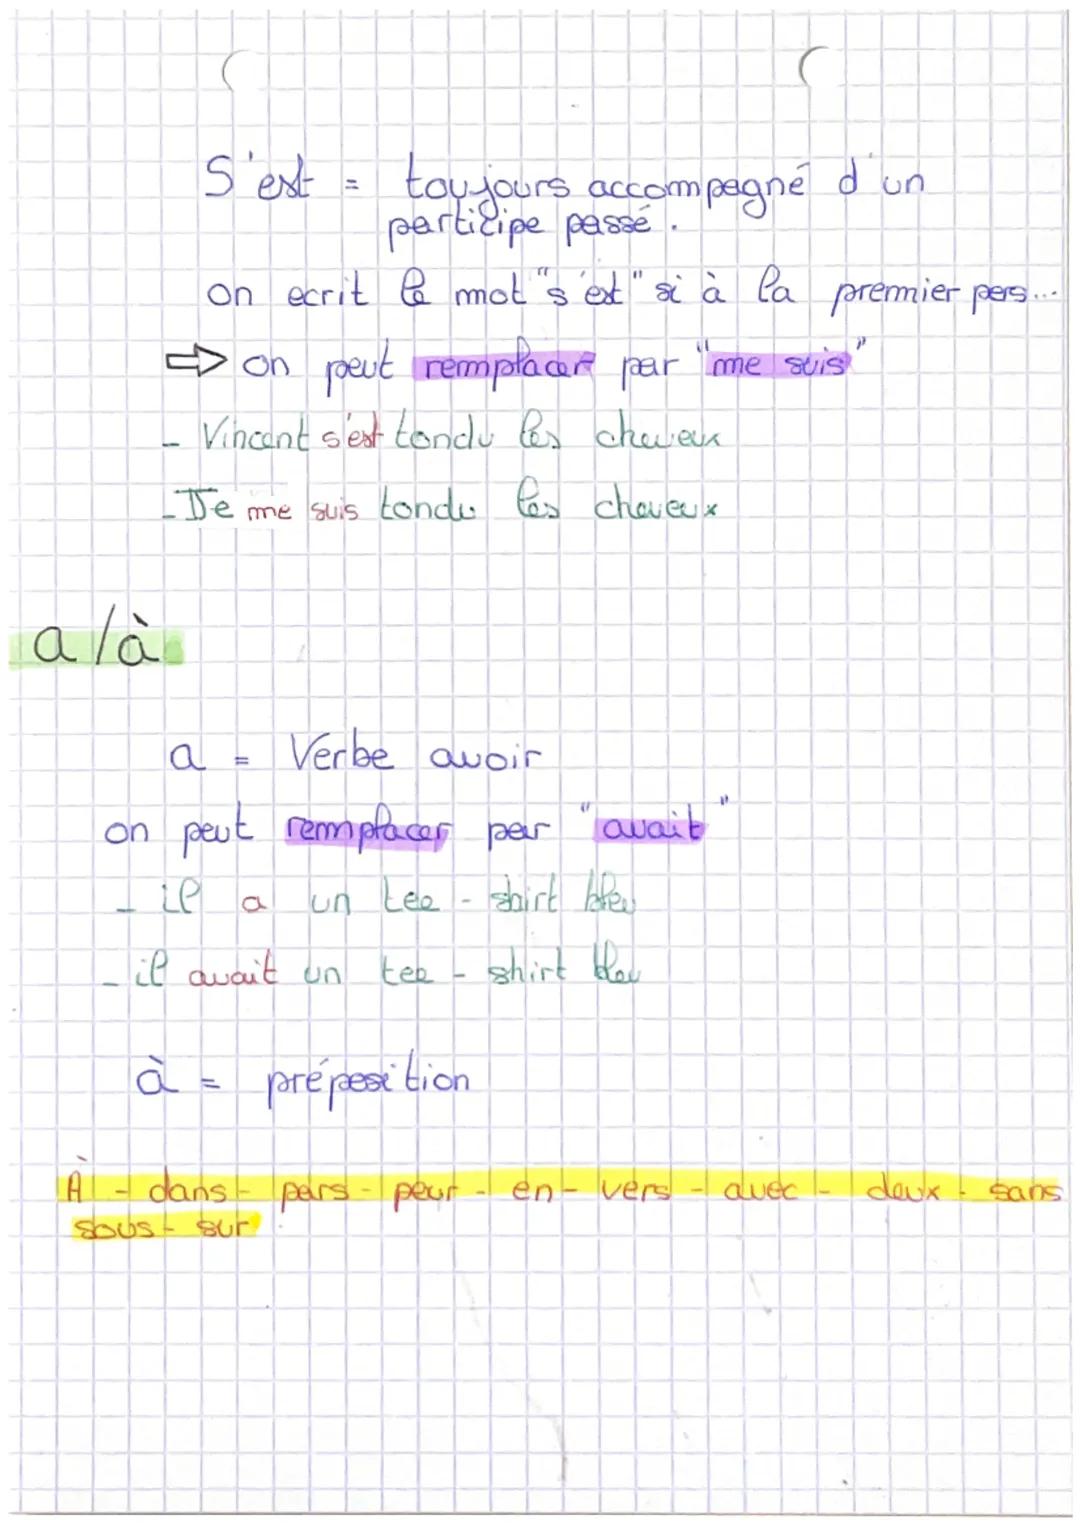 S'est = toujours accompagné d'un
participe passé.
on ecrit le mot "s'est" si à la premier pers...
⇒ on peut remplacer par "me suis"
- Vincent s'est tondu les cheveux
- Je me suis tondu les cheveux
a/à
a = Verbe avoir
on peut remplacer par "avait"
- il a un tee-shirt bleu
- il avait un tee-shirt bleu
à = préposition
À - dans - pars - pour - en - vers - avec - deux - sans
sous - sur